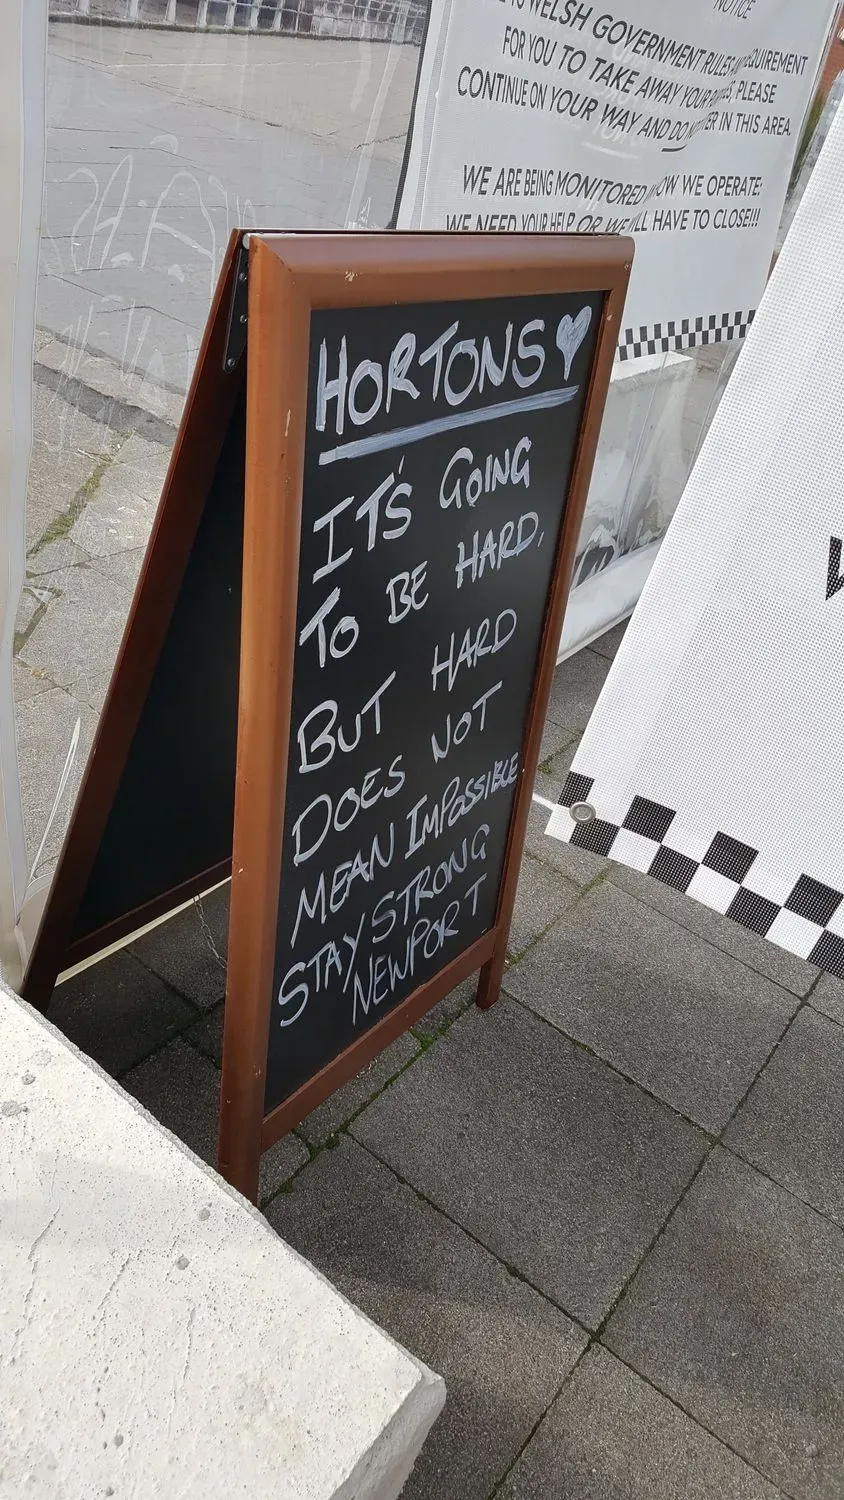 NOTICE
WELSH GOVERNMENT RULES
FOR YOU TO TAKE AWAY YOUR PLEASE
CONTINUE ON YOUR WAY AND DO IN THIS AREA.
WE ARE BEING MONITORED WE OPERATE:
WE NEED YOUR HELP OR HAVE TO CLOSE!!!
HORTONS
IT'S GOING
TO BE HARD,
BUT HARD
DOES NOT
MEAN IMPOSSIBLE
STAY STRONG
NEWPORT